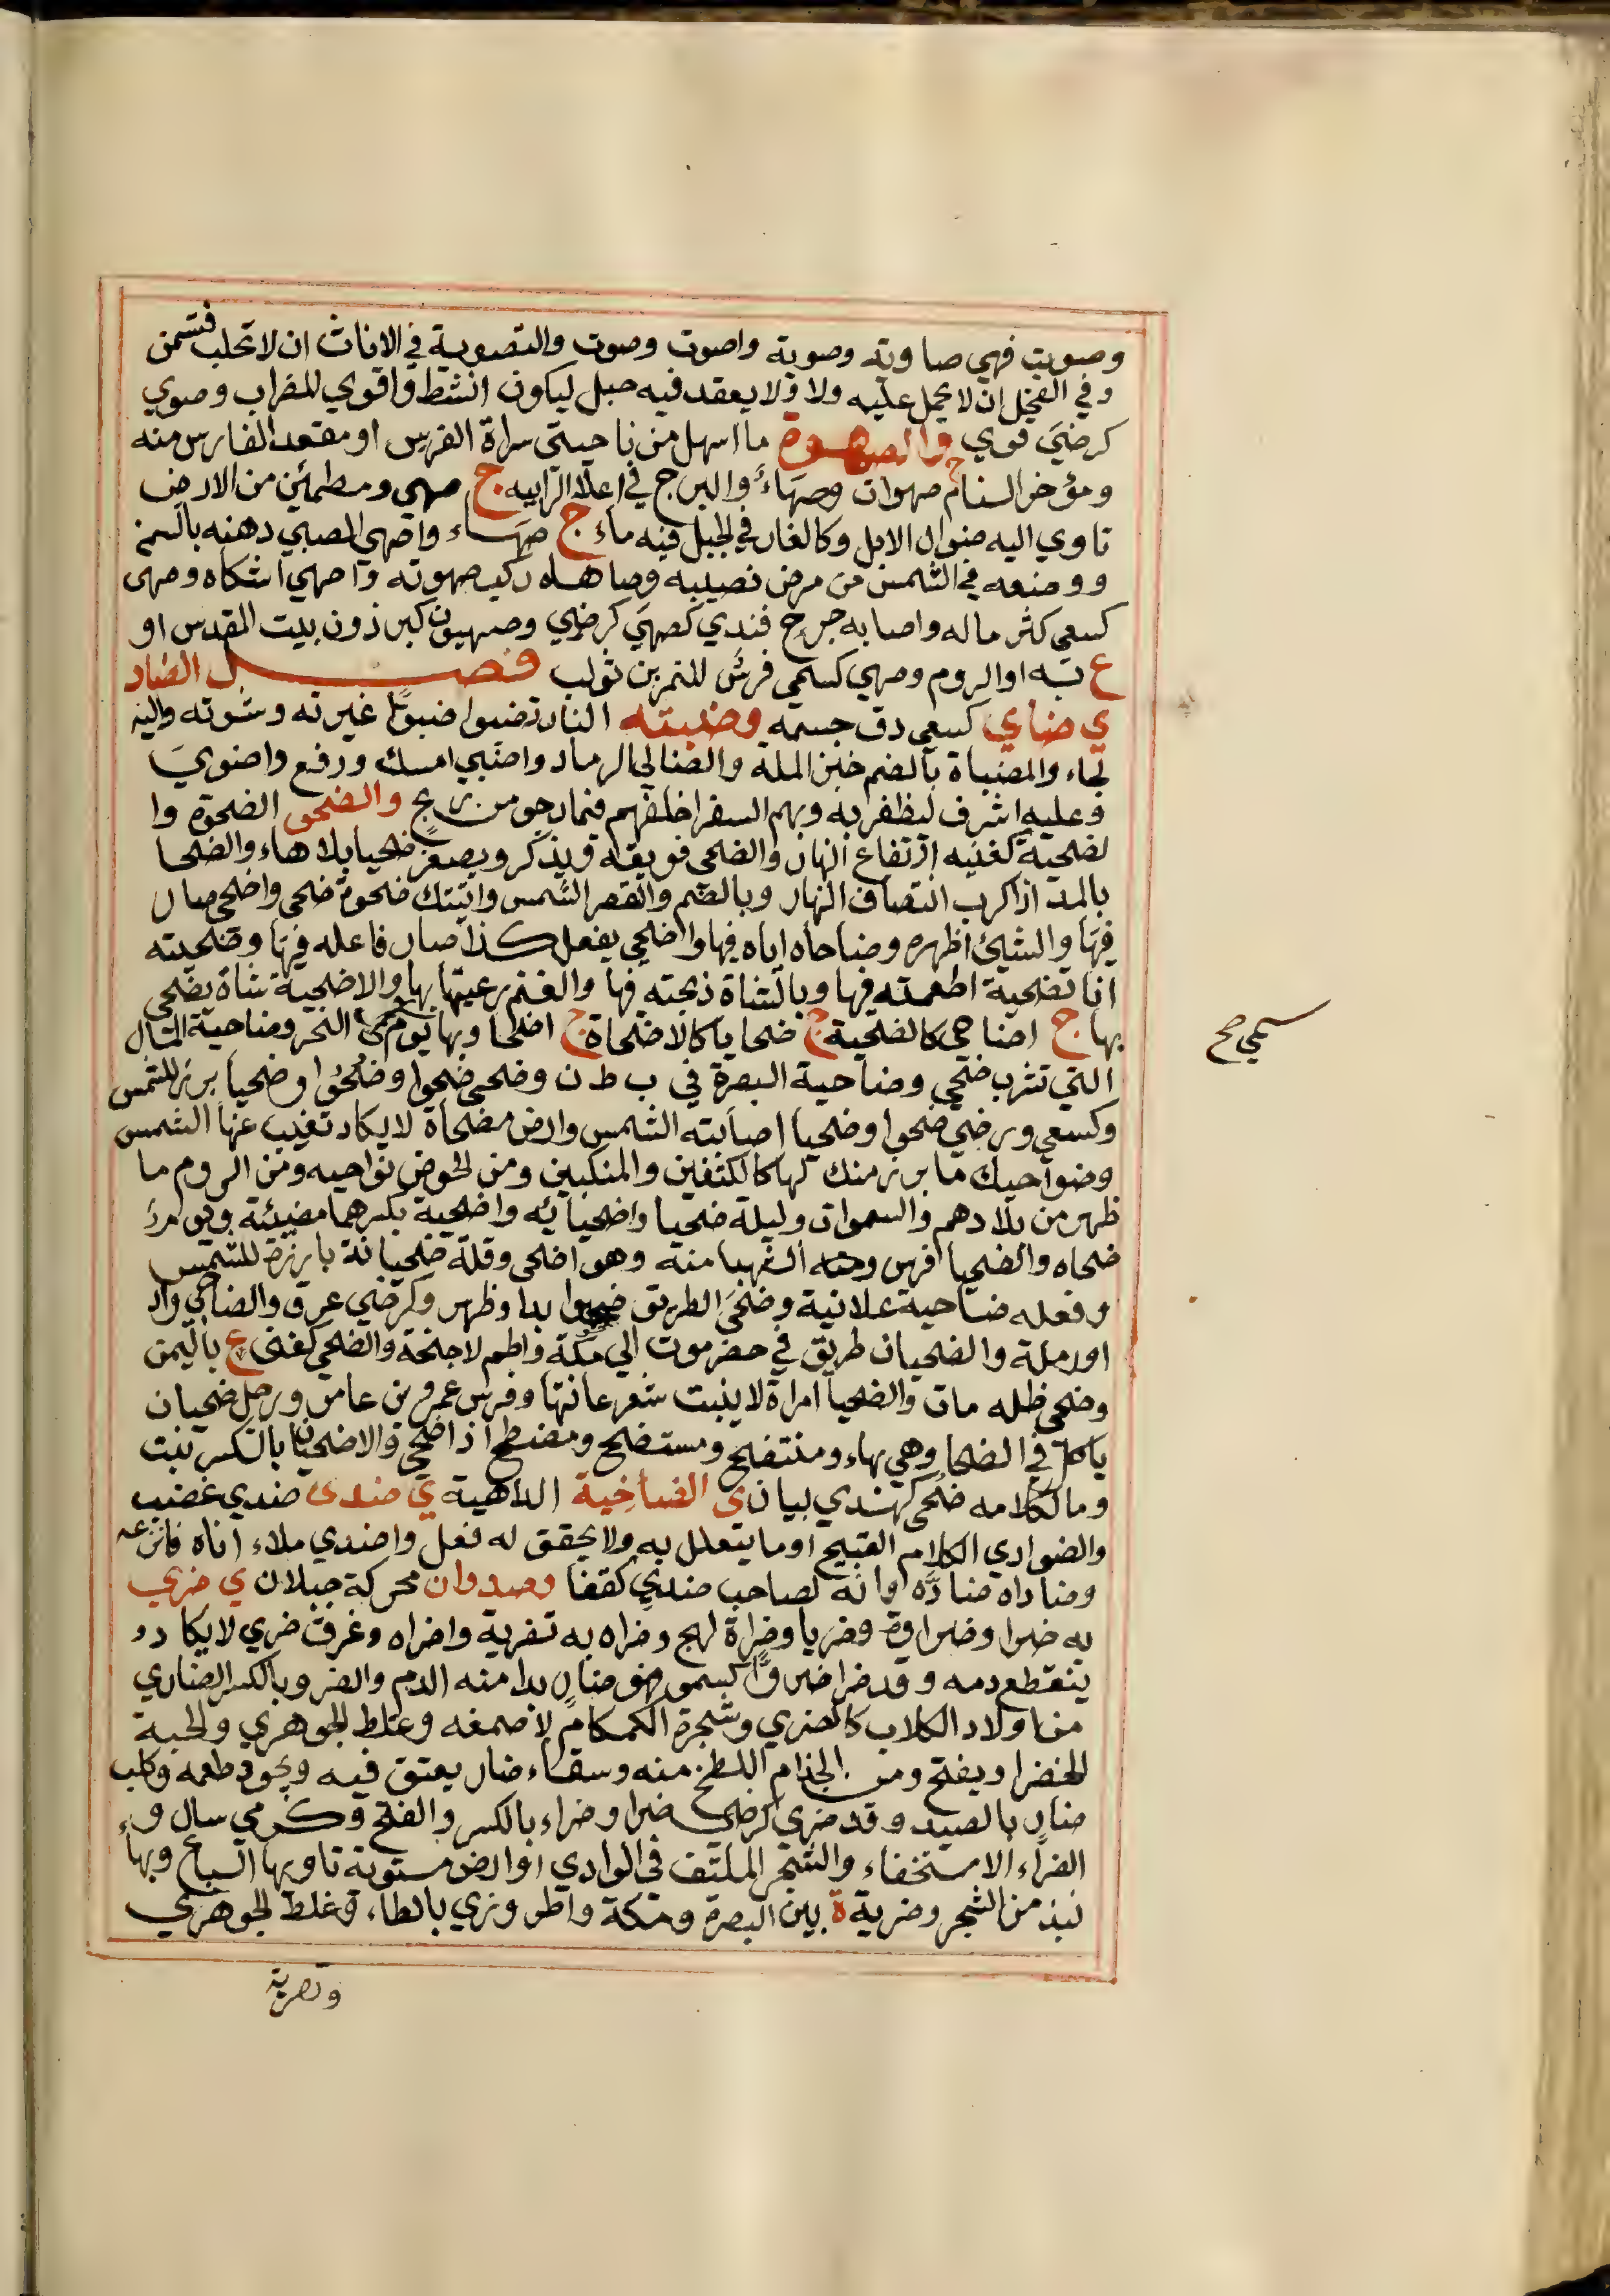 وصويت فهي صاوته وصوية واصوت وصوت والتصوية في الاناث ان لا تحلب فتسمن
وفي الفحل ان لا يحمل عليه ولا ولا يعقد فيه حبل ليكون انشط واقوي للضراب وصوي
كرضيَ قوي والصهوة ما اسهل من ناحيتى سراة الفرس او مقعد الفارس منه
ومؤخر السنام ج صهوات وصهَاءُ والبرج في اعلا الرابيه ج صهى ومطمئن من الارض
تاوي اليه ضوال الابل وكالغار في الجبل فيه ماء ج صهَاء واصهى الصبي دهنه بالسمن
ووضعه في الشمس من مرض نصيبه وصاهاه ركب صهوته واصهي اشتكاه وصهى
كسعى كثر ماله واصابه جرح فندي كصهيَ كرضي وصهيون كبرذون بيت المقدس او
ع به او الروم وصهي كسمي فرسُ للنمر بن تولب فصل الضاد
ي ضاي كسعى دق جسمه وضبته النار تضبوا ضبوًا غيرته وشوته واليه
لجاء والمضباة بالضم خبز الملة والضابي الرماد واضبي امسك ورفع واضويَ
وعليه اشرف ليظفر به وبهم السفر اخلفهم فيما رجو من ربح والضحو الضحوة وا
لضحية كغنيه ارتفاع النهار والضحى فويقه ويذكر ويصغر ضحيا بلا هاء والضحا
بالمد اذا كرب انتصاف النهار وبالضم والقصر الشمس واتيتك ضحوة ضحى واضحى صار
فيها والشيئ اظهره وضاحاه اتاه فيها واضحي يفعل كذا صار فاعله فيها وضحيته
انا تضحية اطعمته فيها وبالشاة ذبحته فيها والغنم رعيتها بها والاضحية شاة يضحى
بها ج اضاحى كالضحية ج ضحايا كالاضحاة ج اضحا وبها يوم النحر وضاحية المال
سمي صح
التي تشرب ضحي وضاحية البصرة في ب ط ن وضحى ضحوا وضُحُوا وضحيا برز للشمس
وكسعي ورضي ضحوا وضحيا اصابته الشمس وارض مضحاة لا يكاد تغيب عنها الشمس
وضواحيك ما برز منك لها كالكتفين والمنكبين ومن الحوض نواحيه ومن الروم ما
ظهر من بلادهم والسموات وليلة ضحيا واضحيانه واضحية بكسرهما مضيئة ويوم
ضحاه والضحيا افرس وحته الشهبا منه وهو اضحى وقلة ضحيانة بارزة للشمس
وفعله ضاحية علانية وضحَى الطريق ضحوا بدا وظهر وكرضي عرق والضاحي واد
او رملة والضحيان طريق في حضرموت الي مكة واطم لاجنحة والضحي كغنى ع باليمن
وضحى ظله مات والضحيا امراة لا ينبت شعر عانتها وفرس عمرو بن عامر ورجل ضحيان
ياكل في الضحا وهي بهاء ومنتضح ومستضح ومضطح اذا ضحى والاضحيان بالكسر نبت
وما لكلامه ضُحى كهندي بيان ى الضاخية الداهية ي ضدى ضدي غضب
والضوادي الكلام القبيح او ما يتعلل به ولا يحقق له فعل واضدي ملاء اناه فاترعه
وضاداه ضادّه وانه لصاحب ضدي كقفا وضدوان محركة جبلان ي ضري
به ضرا وضراوة وضريا وضراة لهج وضراه به تضرية واضراه وعرق ضري لا يكاد
ينقطع دمه وقد ضرا ضروًّا كسمو فهو ضارٍ بدا منه الدم والضرو بالكسر الضاري
من اولاد الكلاب كالضري وشجرة الكمكام لا صمغه وغلط الجوهري والحبة
الخضرا ويفتح ومن الجذام اللطخ منه وسقاء ضار يعتق فيه ويجود طعمه وكلب
ضارٍ بالصيد وقد ضرى كرضى ضرا وضراء بالكسر والفتح وكرمي سال و
الضراء الاستخفاء والشجر الملتف في الوادي او ارض مستوية تاويها السباع وبها
نبذ من الشجر وضرية ة بين البصرة ومكة واطروري بالطاء وغلط الجوهري
وتصرية